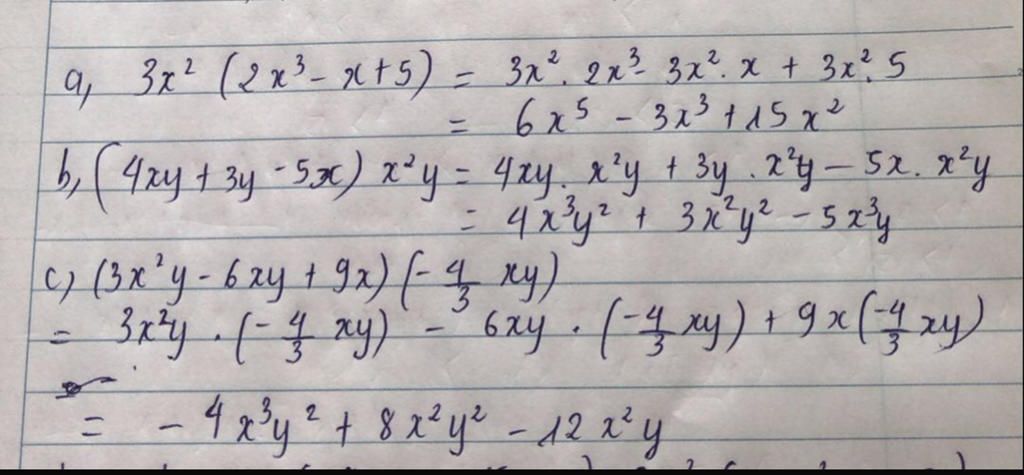 a, 3x² (2x³ - x + 5) = 3x² . 2x³ - 3x² . x + 3x² . 5
= 6x⁵ - 3x³ + 15x²
b, (4xy + 3y - 5x) x²y = 4xy . x²y + 3y . x²y - 5x . x²y
= 4x³y² + 3x²y² - 5x³y
c) (3x²y - 6xy + 9x) (-4/3 xy)
= 3x²y . (-4/3 xy) - 6xy . (-4/3 xy) + 9x (-4/3 xy)
= - 4x³y² + 8x²y² - 12x²y